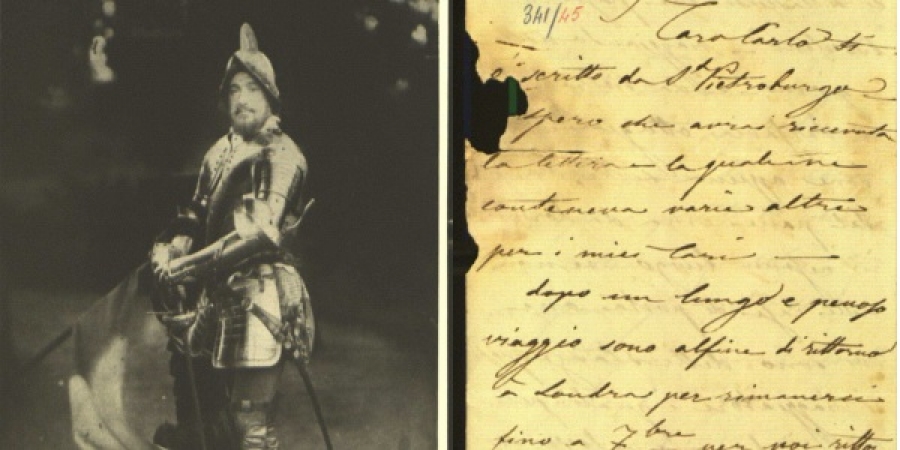 341/45
Caro Carlo ti
scritto da St Pietroburgo
spero che avrai ricevuta
la lettera
conteneva varie altre
per i miei Cari —
dopo un lungo e penoso
viaggio sono alfine di ritorno
a Londra per rimanervi
fino a 7bre per poi